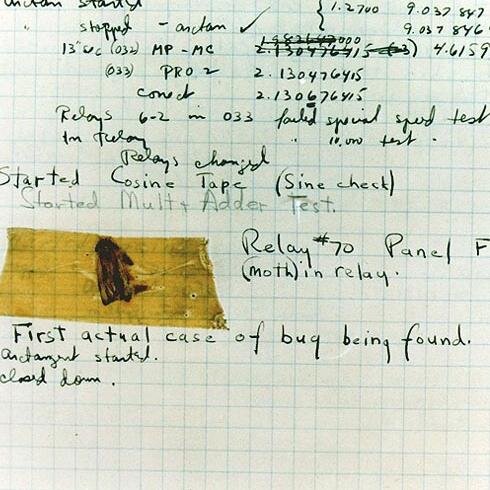 arctan started
{ 1.2700 9.037 847
" stopped - arctan ✓ 9.037 846
13" sec (032) MP - MC 2.130476415 4.6159
(033) PRO 2 2.130476415
correct 2.130676415
Relays 6-2 in 033 failed special speed test
In Relay " 10,000 test .
Relays changed
Started Cosine Tape (Sine check)
Started Mult+ Adder Test.
Relay #70 Panel F
(moth) in relay.
First actual case of bug being found.
arctangent started.
closed down .